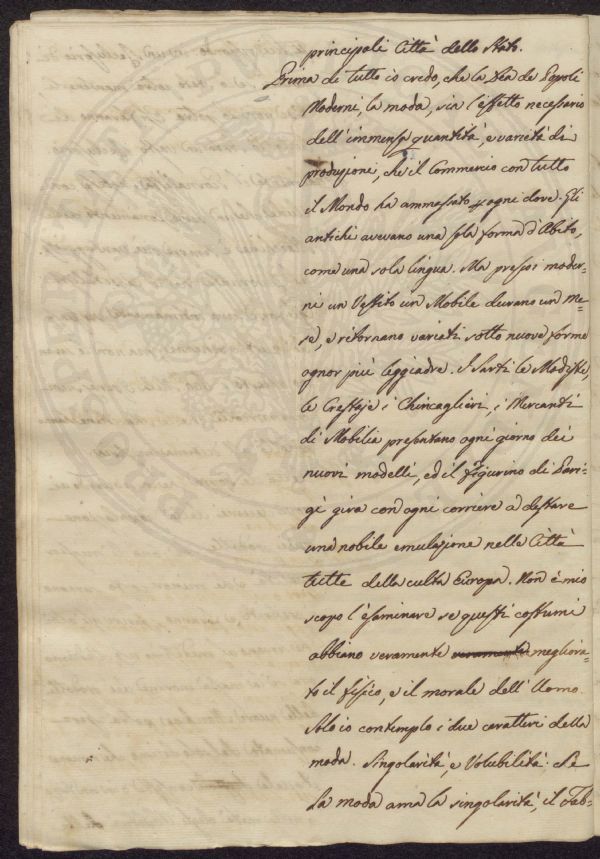 principali Città dello Stato.
Prima di tutto io credo, che la Dea de Popoli
Moderni, la moda, sia l'effetto necessario
dell'immensa quantità, e varietà di
produzioni, che il Commercio con tutto
il Mondo ha ammassato ogni dove. Gli
antichi avevano una sola forma d'Abito,
come una sola lingua. Ma presso i moder-
ni un Vestito un Mobile durano un me=
se, e ritornano variati sotto nuove forme
ognor più leggiadre. I Sarti le Modiste,
le Crestaje i Chincaglieri, i Mercanti
di Mobilia presentano ogni giorno dei
nuovi modelli, ed il figurino di Pari-
gi gira con ogni corriere a destare
una nobile emulazione nelle Città
tutte della culta Europa. Non è mio
scopo l'esaminare se questi costumi
abbiano veramente veramente megliora-
to il fisico, e il morale dell'Uomo.
Solo io contemplo i due caratteri della
moda. Singolarità, e Volubilità. Se
la moda ama la singolarità, il Fab=